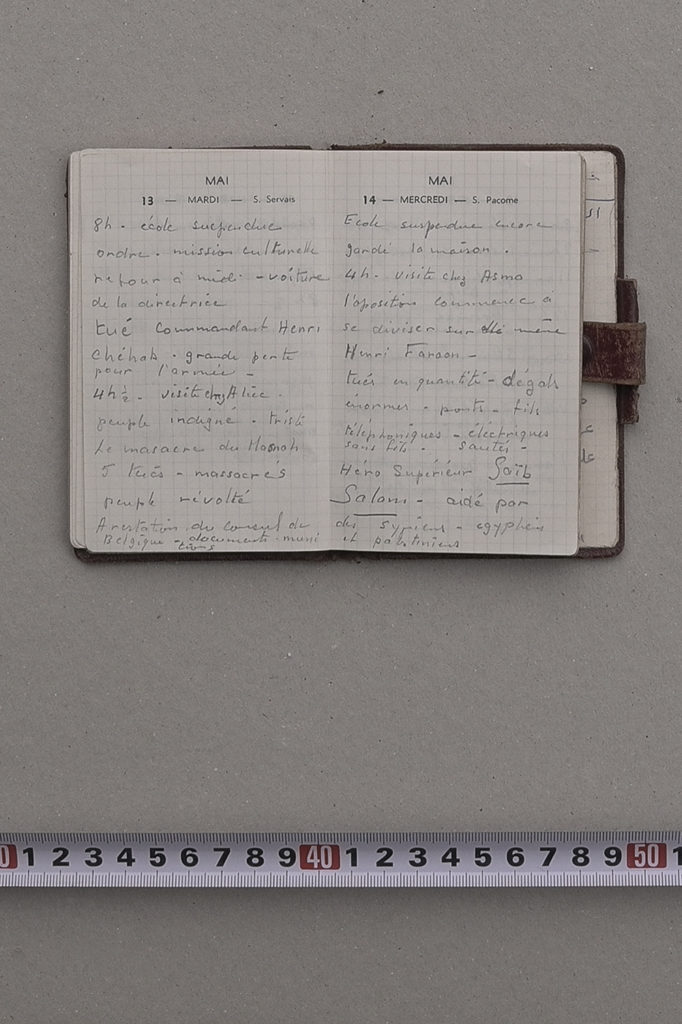 MAI
13 — MARDI — S. Servais
8h. école suspendue
ordre. mission culturelle
retour à midi - voiture
de la directrice
tué Commandant Henri
Chéhab. grande perte
pour l'armée -
4h ½. visite chez Alice.
peuple indigné. triste
Le masacre du
5 tués - massacrés
peuple révolté
Arestation du consul de
Belgique - documents - muni
tions
MAI
14 — MERCREDI — S. Pacome
Ecole suspendue encore
gardé la maison.
4h. visite chez Asma
l'oposition commence à
se diviser sur elle même
Henri Faraon -
tués en quantité - dégats
énormes - ponts - fils
téléphoniques - électriques
sans fils - sautés -
Héro Supérieur Saïb
Salam - aidé par
des syriens - egyptiens
et palestiniens
0 1 2 3 4 5 6 7 8 9 40 1 2 3 4 5 6 7 8 9 50 1